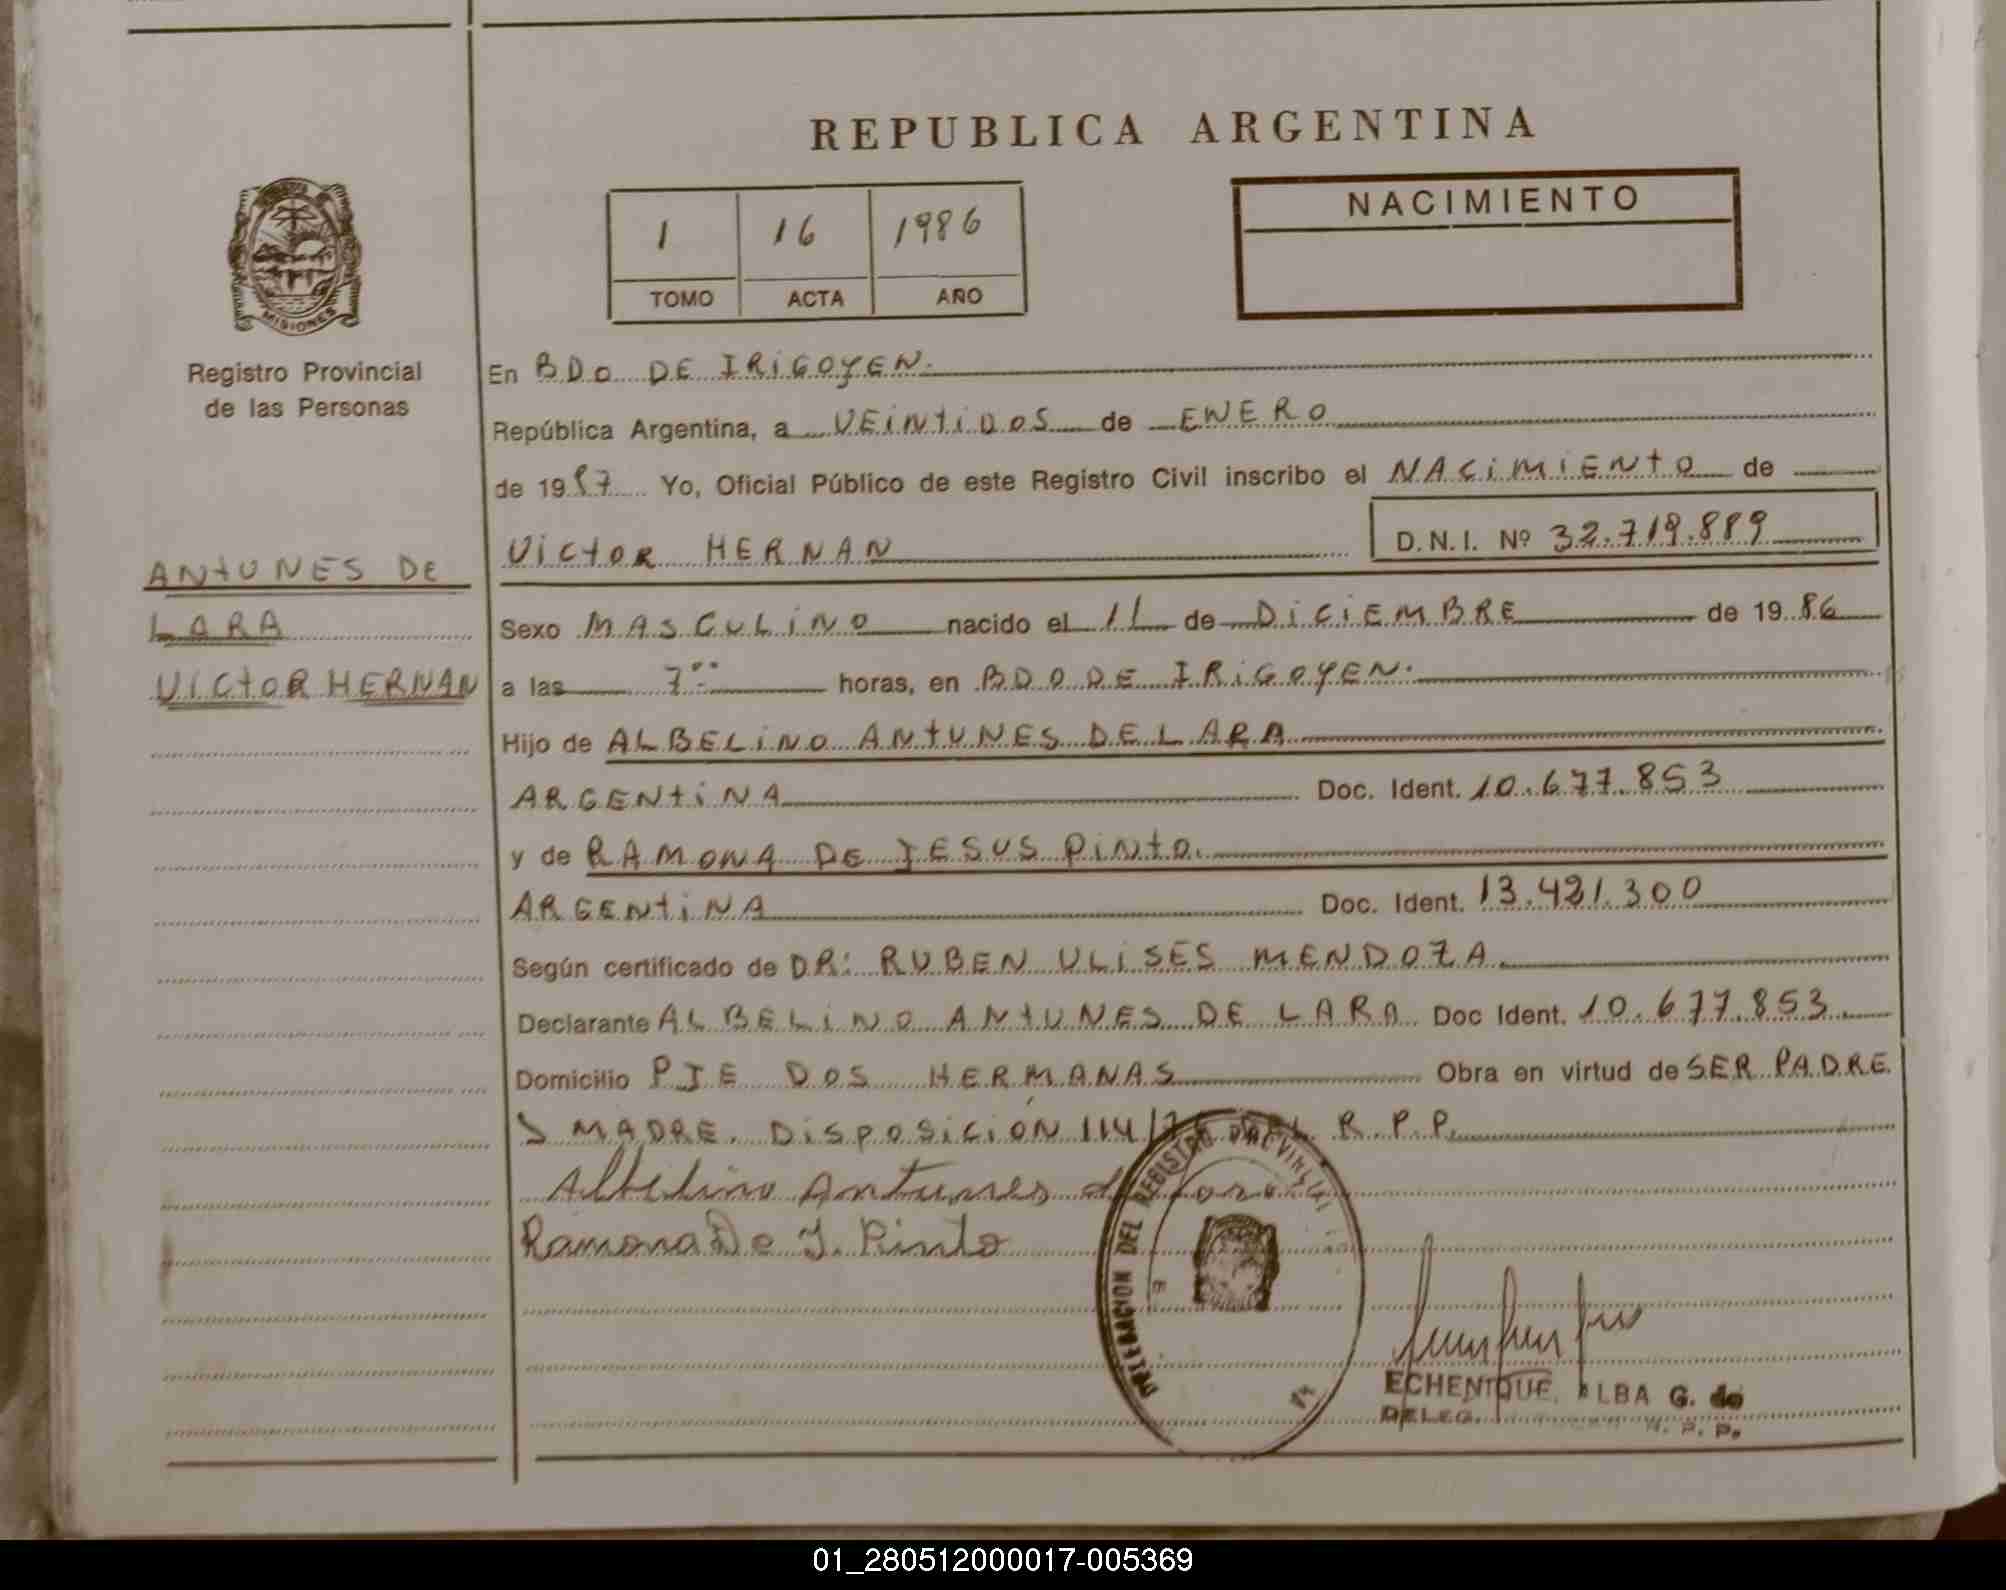 REPUBLICA ARGENTINA
1 16 1986
TOMO ACTA AÑO
NACIMIENTO
MISIONES
Registro Provincial
de las Personas
ANTUNES DE
LARA
VICTOR HERNAN
En BDO DE IRIGOYEN.
República Argentina, a VEINTIDOS de ENERO
de 1987 Yo, Oficial Público de este Registro Civil inscribo el NACIMIENTO de
VICTOR HERNAN D.N.I. Nº 32.719.889
Sexo MASCULINO nacido el 11 de DICIEMBRE de 1986
a las 7 horas, en BDO DE IRIGOYEN.
Hijo de ALBELINO ANTUNES DE LARA
ARGENTINA Doc. Ident. 10.677.853
y de RAMONA DE JESUS PINTO.
ARGENTINA Doc. Ident. 13.421.300
Según certificado de DR: RUBEN ULISES MENDOZA
Declarante ALBELINO ANTUNES DE LARA Doc Ident. 10.677.853
Domicilio PJE DOS HERMANAS Obra en virtud de SER PADRE
Y MADRE. DISPOSICIÓN 114/ R.P.P.
Albelino Antunes de Lara
Ramona De J. Pinto
DELEGACION DEL REGISTRO PROVINCIAL
ECHENIQUE, ALBA G. de
DELEG. R. P. P.
01_280512000017-005369